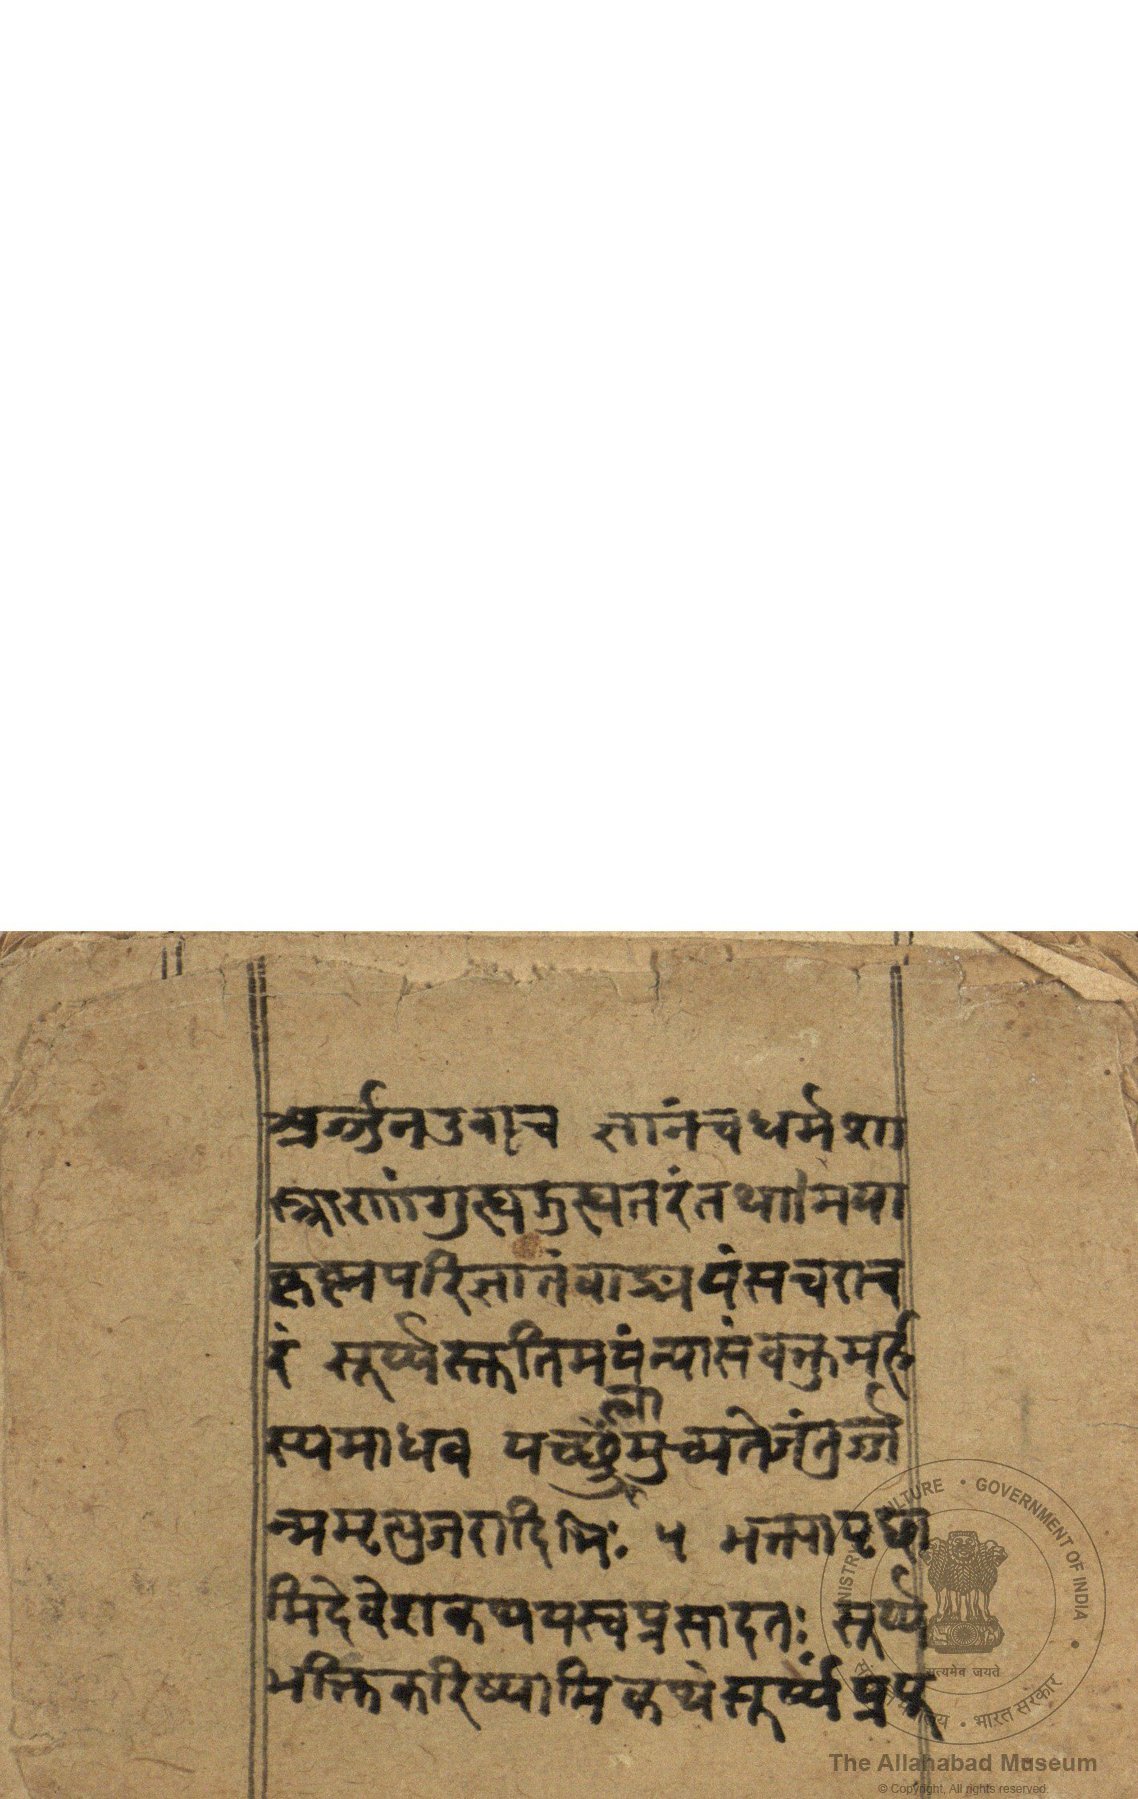 अर्ज्जुनउवाच ज्ञानंचधर्मशा
स्त्राणांगुह्यगुह्यतरंतथा।मया
कृष्णपरिज्ञातंवाङ्मयंसचराच
रं सूर्य्यस्तुतिमयंन्यासंवक्तुमर्ह
स्यमाधव मुच्यतेजंतुर्ज
न्ममृत्युजरादिभिः ५ भक्त्यापृछा
मिदेवेशकथयस्वप्रसादतः सूर्य्य
भक्तिंकरिष्यामिकथंसूर्य्यंप्रपू
MINISTRY OF CULTURE • GOVERNMENT OF INDIA
सत्यमेव जयते
संस्कृति मंत्रालय • भारत सरकार
The Allahabad Museum
© Copyright, All rights reserved.